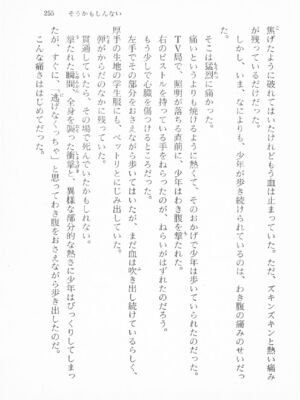 255　そうかもしんない
焦げたように破れてはいたけどもう血は止まっていた。ただ、ズキンズキンと熱い痛み
が残っているだけだった。
しかし、いま、なによりも、少年が歩き続けられているのは、わき腹の痛みのせいだ
った。
そこは猛烈に痛かった。
痛いというよりも焼けるように熱くて、そのおかげで少年は歩いていられたのだった。
TV局で、照明が落ちる直前に、少年はわき腹を撃たれた。
右のピストルを持っている手をねらったのが、ねらいがはずれたのだろう。
もう少しで心臓を傷つけるところだった。
左手でその部分をおさえながら歩いてはいたが、まだ血は吹き出し続けているらしく、
厚手の生地の学生服にも、ベットリとにじみ出していた。
弾が貫通していたら、その場で死んでいたかもしれない。
撃たれた瞬間、全身を襲った衝撃と、異様な部分的な熱さに少年はびっくりしてしまっ
たが、すぐに、“逃げなくっちゃ”と思ってわき腹をおさえながら歩き出したのだ。
こんな痛さははじめてだった。